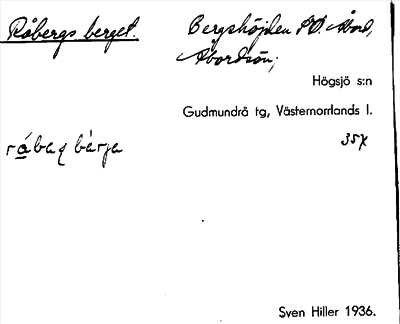 Råbergs berget.
Bergshöjden SO. Åbord,
Åbordsön;
Högsjö s:n
Gudmundrå tg, Västernorrlands l.
35X
Sven Hiller 1936.